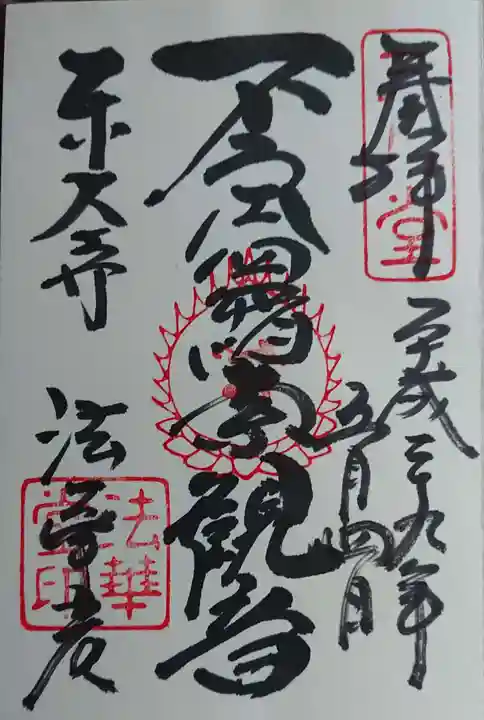 奉拝
平成二九年
五月四日
不空羂索觀音
東大寺 法華堂
法華
堂印